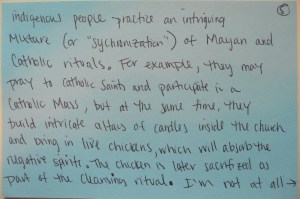 ⑤
indigenous people practice an intriguing
mixture (or "sychronization") of Mayan and
Catholic rituals. For example, they may
pray to Catholic Saints and participate in a
Catholic Mass, but at the same time, they
build intricate altars of candles inside the church
and bring in live chickens, which will absorb the
negative spirits. The chicken is later sacrificed as
part of the cleansing ritual. I'm not at all →